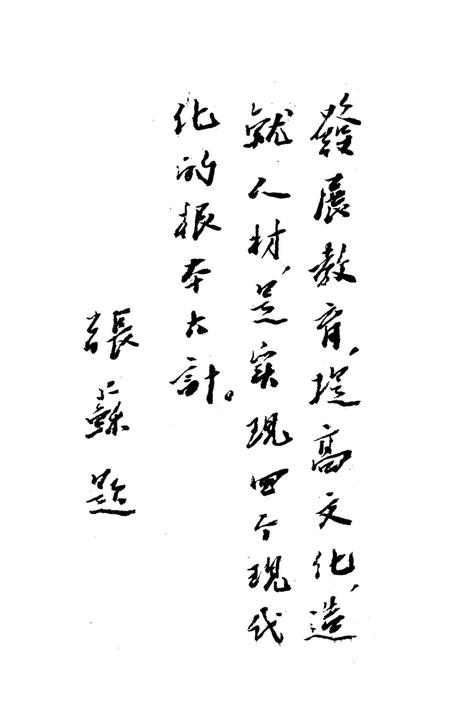 發展教育，提高文化，造
就人材，是实现四个现代
化的根本大計。
張蘇題